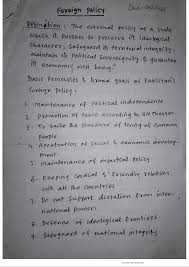 Foreign Policy
Definition: The external policy of a state
which it pursues to preserve its ideological
character, safeguard its territorial integrity,
maintain its political sovereignty & guarantee
its economic well being"
Basic Principles & broad goals of Pakistan's
foreign policy:
1. Maintenance of Political independence
2. Promotion of Peace According to UN Charter
3. To raise the Standard of living of Common
People
4. Acceleration of Social & economic develop-
ment
5. Maintenance of impartial Policy
6. Keeping Cordial & friendly relations
with all the countries
7. Do not support dictation from inter-
national powers
8. Defense of ideological frontiers
9. Safeguard of national integrity